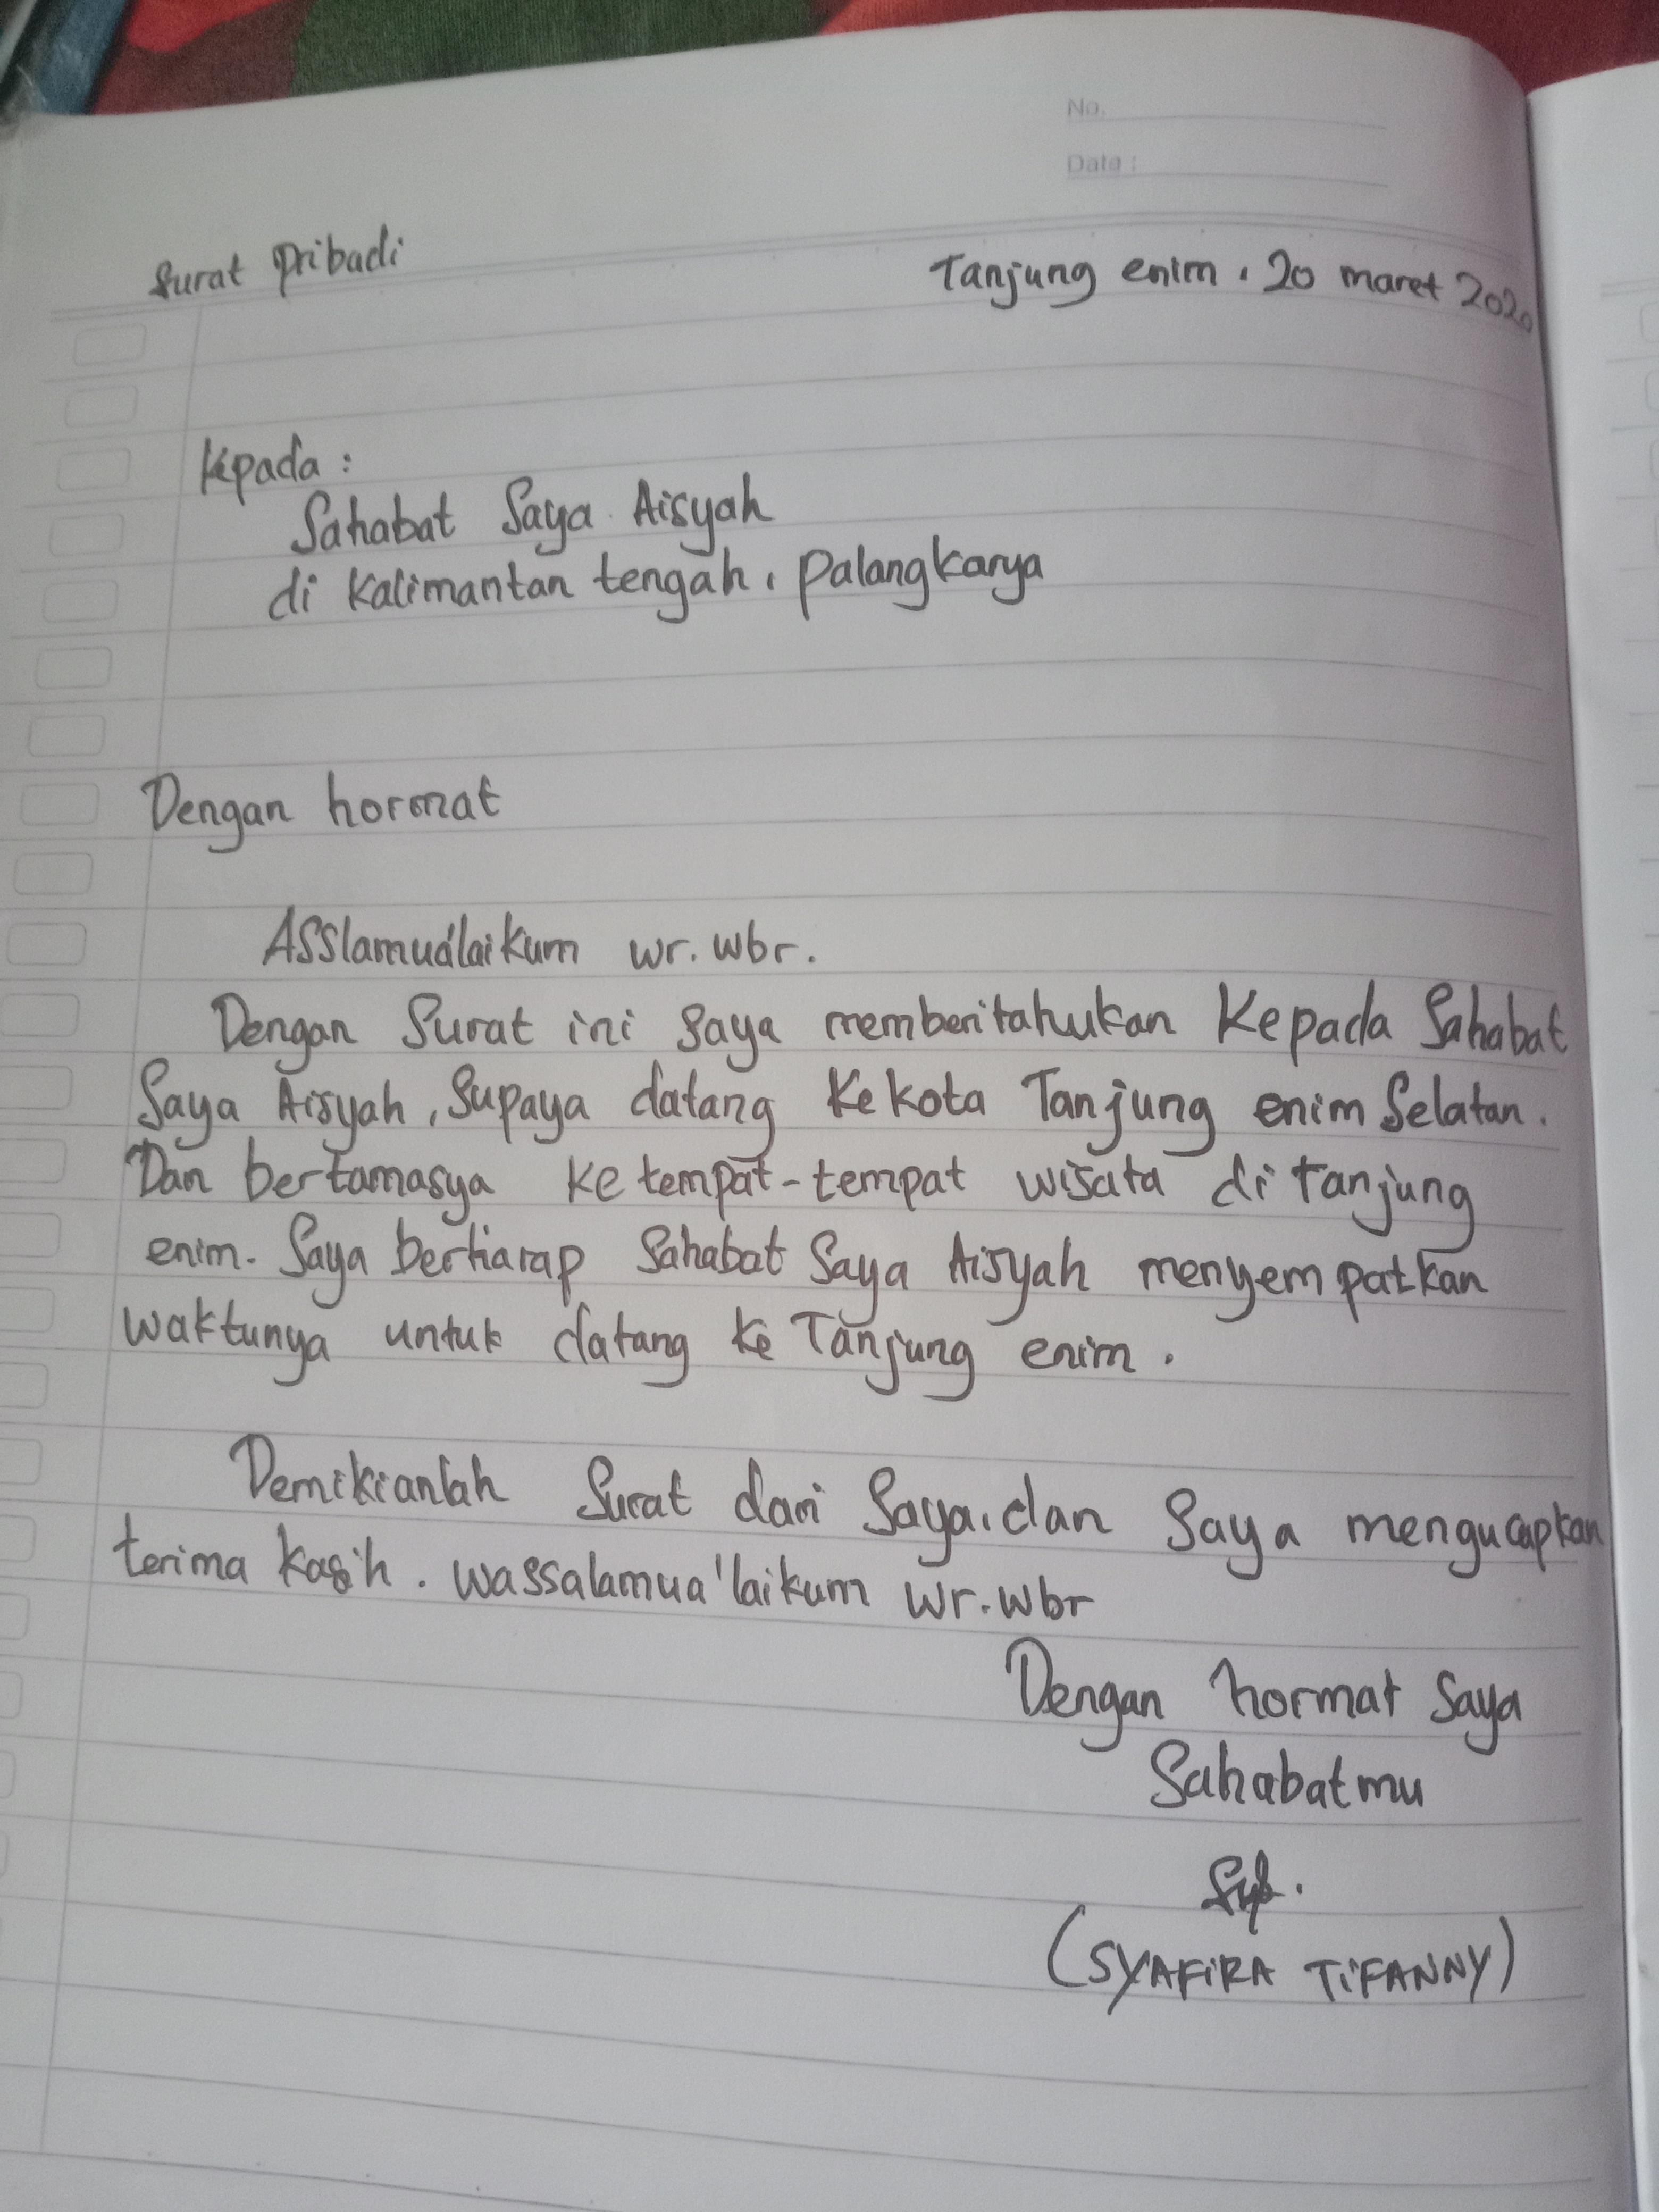 No.
Date :
Surat Pribadi
Tanjung enim, 20 maret 2020
Kepada :
Sahabat Saya Aisyah
di Kalimantan tengah, Palangkarya
Dengan hormat
Asslamuálaikum wr. wbr.
Dengan Surat ini Saya memberitahukan Kepada Sahabat
Saya Aisyah, Supaya datang Ke kota Tanjung enim Selatan.
Dan bertamasya Ke tempat-tempat wisata di Tanjung
enim. Saya berharap Sahabat Saya Aisyah menyempatkan
waktunya untuk datang Ke Tanjung enim.
Demikianlah Surat dari Saya, dan Saya mengucapkan
terima kasih. wassalamua'laikum wr. wbr
Dengan hormat Saya
Sahabatmu
(SYAFiRA TiFANNY)